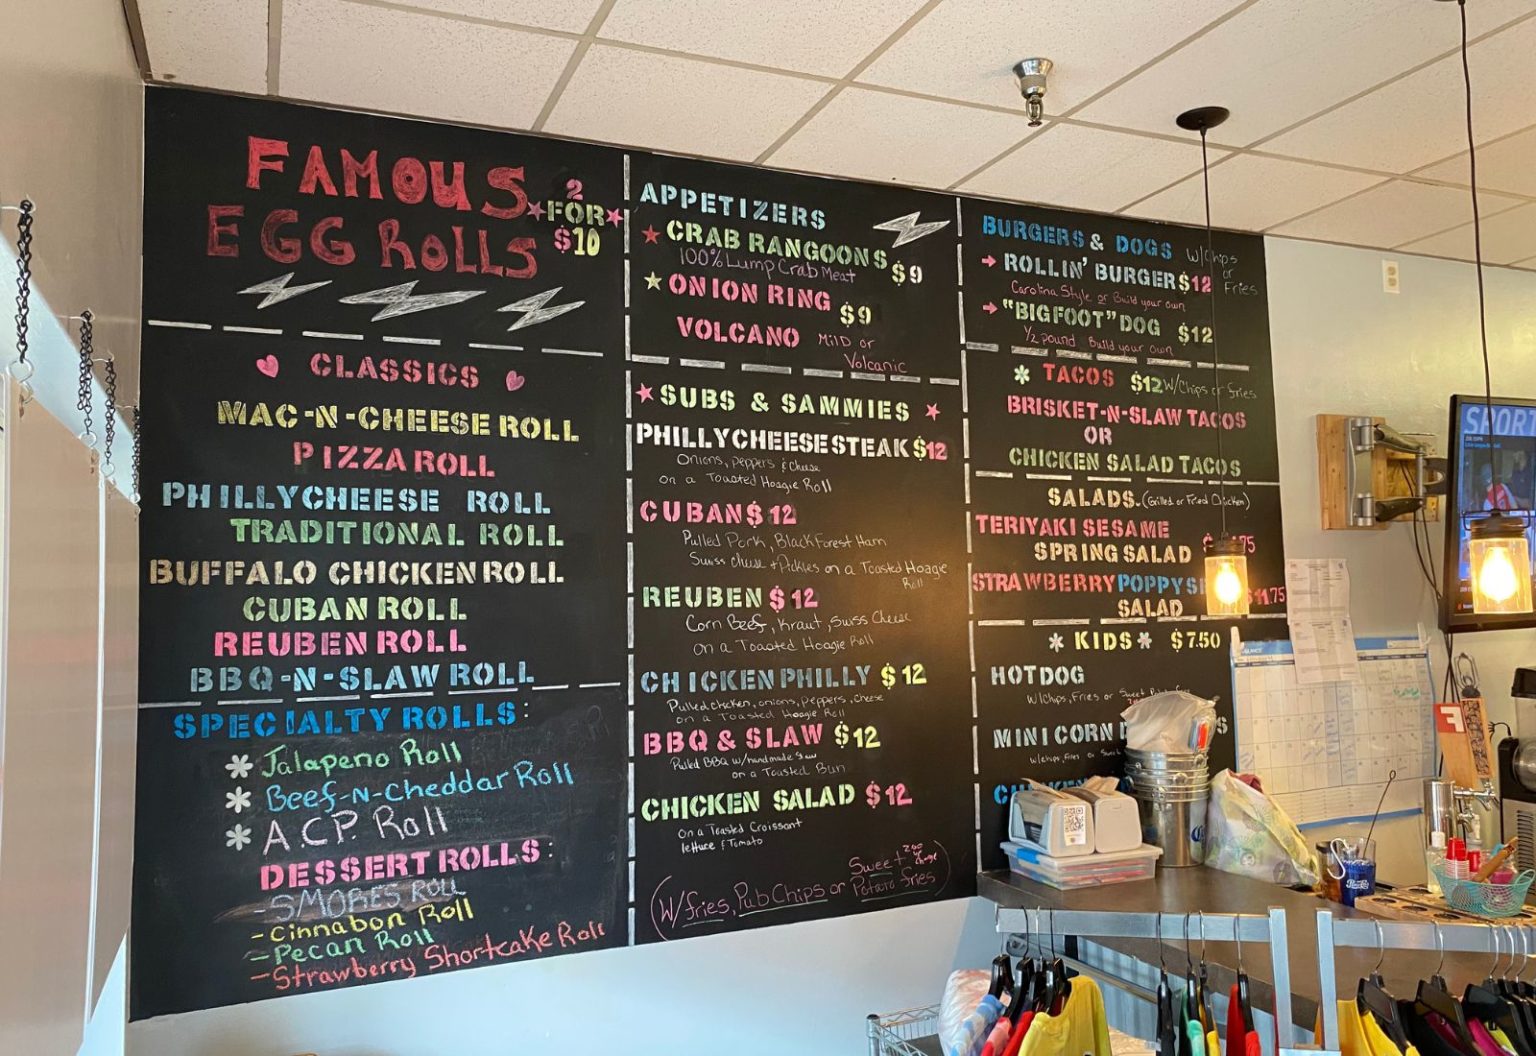 FAMOUS
EGG ROLLS
2
FOR
$10
CLASSICS
MAC-N-CHEESE ROLL
PIZZA ROLL
PHILLYCHEESE ROLL
TRADITIONAL ROLL
BUFFALO CHICKEN ROLL
CUBAN ROLL
REUBEN ROLL
BBQ-N-SLAW ROLL
SPECIALTY ROLLS:
Jalapeno Roll
Beef-N-Cheddar Roll
A.C.P. Roll
DESSERT ROLLS:
- SMORES ROLL
- Cinnabon Roll
- Pecan Roll
- Strawberry Shortcake Roll
APPETIZERS
CRAB RANGOONS $9
100% Lump Crab Meat
ONION RING
VOLCANO $9
Mild or
Volcanic
SUBS & SAMMIES
PHILLYCHEESESTEAK $12
Onions, peppers & cheese
on a Toasted Hoagie Roll
CUBAN $12
Pulled Pork, Black Forest Ham
Swiss cheese + Pickles on a Toasted Hoagie
Roll
REUBEN $12
Corn Beef, Kraut, Swiss Cheese
on a Toasted Hoagie Roll
CHICKEN PHILLY $12
Pulled chicken, onions, peppers, cheese
on a Toasted Hoagie Roll
BBQ & SLAW $12
Pulled BBQ w/handmade slaw
on a Toasted Bun
CHICKEN SALAD $12
on a Toasted Croissant
lettuce & Tomato
(W/fries, Pub Chips or Sweet Potato fries)
BURGERS & DOGS W/Chips
or
Fries
ROLLIN' BURGER $12
Carolina Style or Build your own
"BIGFOOT" DOG $12
1/2 pound Build your own
TACOS $12 W/Chips or fries
BRISKET-N-SLAW TACOS
OR
CHICKEN SALAD TACOS
SALADS. (Grilled or Fried Chicken)
TERIYAKI SESAME
SPRING SALAD
STRAWBERRY POPPYS
SALAD $11.75
KIDS $7.50
HOTDOG
W/Chips, Fries or Sweet
MINI CORN
w/chips, fries or
SPORT